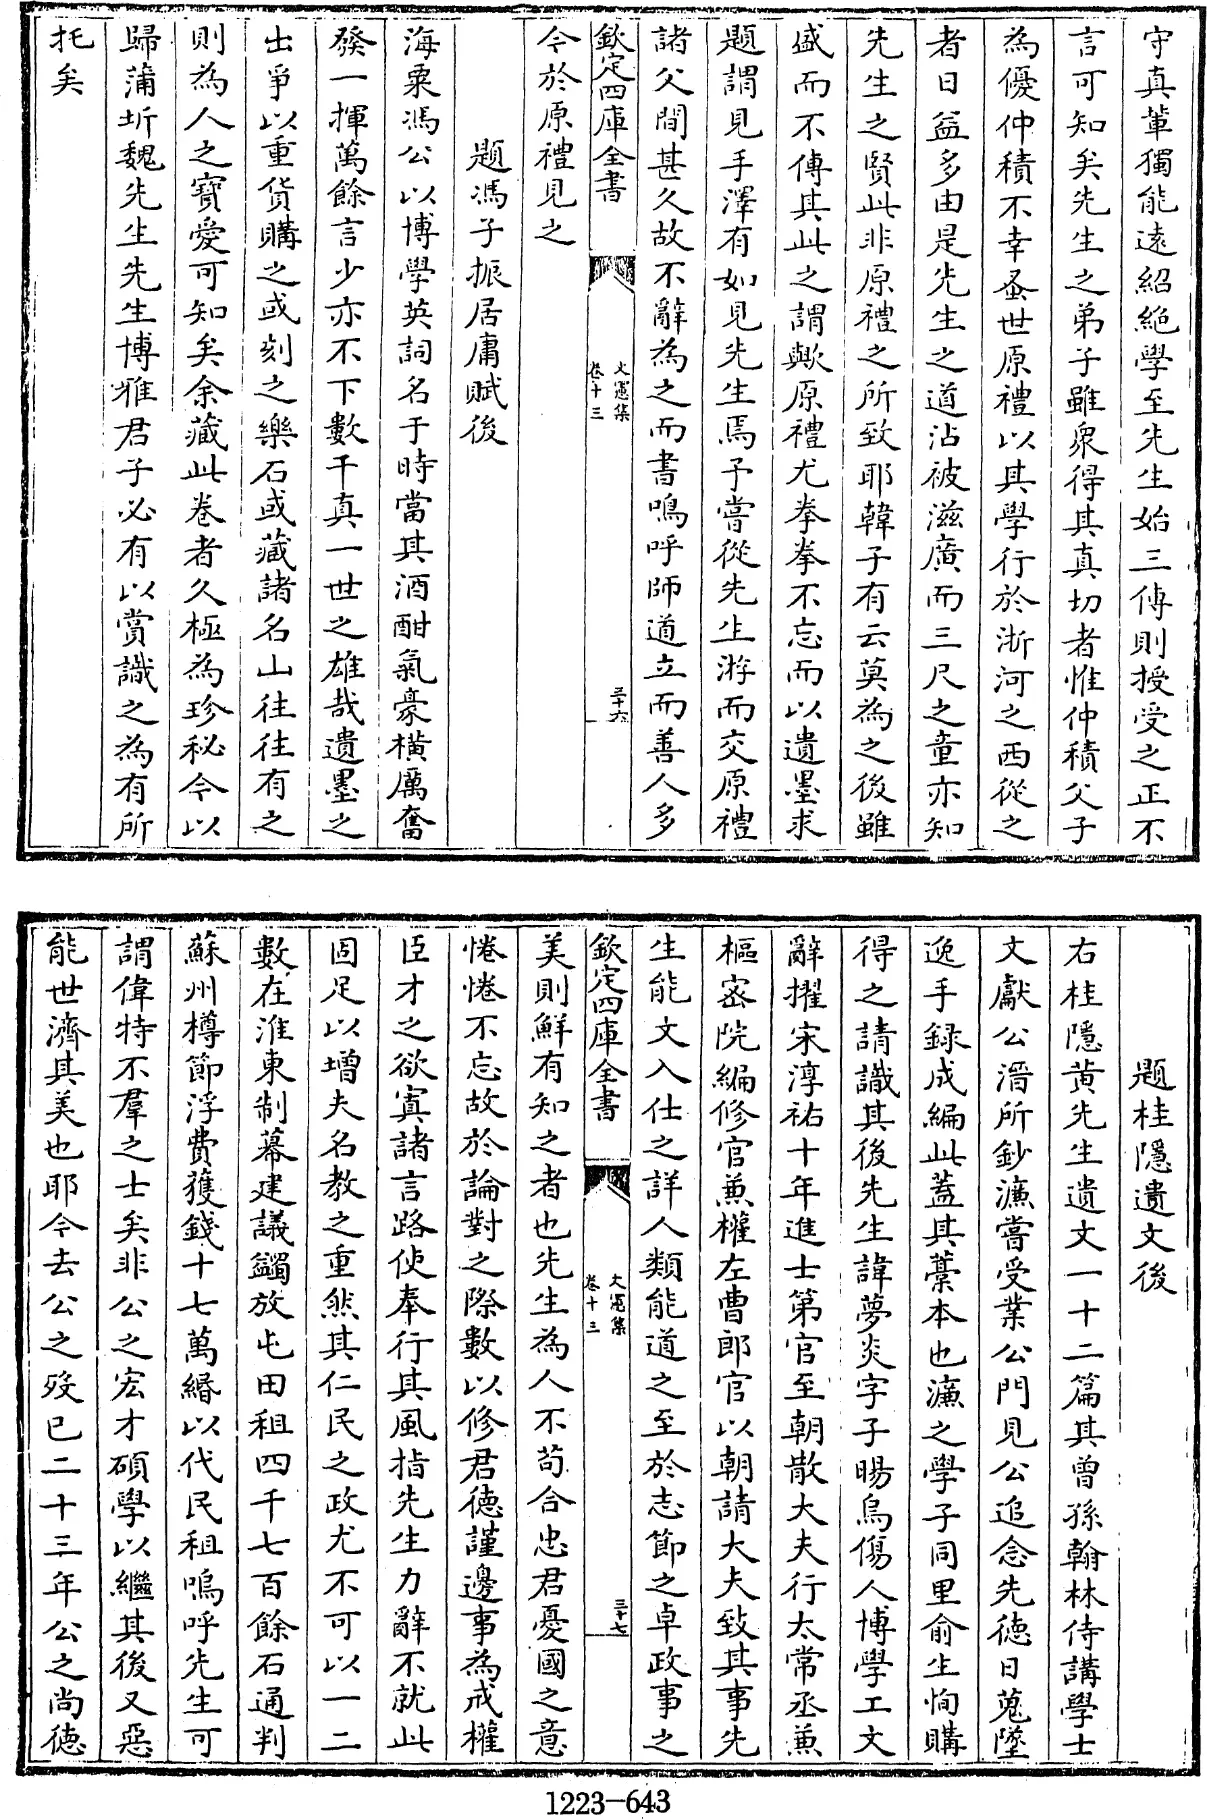 守真輩獨能遠紹絶學至先生始三傳則授受之正不
言可知矣先生之弟子雖衆得其真切者惟仲積父子
為優仲積不幸蚤世原禮以其學行於浙河之西從之
者日益多由是先生之道沾被滋廣而三尺之童亦知
先生之賢此非原禮之所致耶韓子有云莫為之後雖
盛而不傳其此之謂歟原禮尤拳拳不忘而以遺墨求
題謂見手澤有如見先生焉予嘗從先生游而交原禮
諸父間甚久故不辭為之而書嗚呼師道立而善人多
欽定四庫全書
文憲集
卷十三
三十六
今於原禮見之
題馮子振居庸賦後
海粟馮公以博學英詞名于時當其酒酣氣豪橫厲奮
發一揮萬餘言少亦不下數千真一世之雄哉遺墨之
出爭以重貨購之或刻之樂石或藏諸名山往往有之
則為人之寶愛可知矣余藏此卷者久極為珍秘今以
歸蒲圻魏先生先生博雅君子必有以賞識之為有所
托矣
題桂隱遺文後
右桂隱黄先生遺文一十二篇其曾孫翰林侍講學士
文獻公溍所鈔濂嘗受業公門見公追念先德日蒐墜
逸手録成編此蓋其藳本也濂之學子同里俞生恂購
得之請識其後先生諱夢炎字子暘烏傷人博學工文
辭擢宋淳祐十年進士第官至朝散大夫行太常丞兼
樞密院編修官兼權左曹郎官以朝請大夫致其事先
生能文入仕之詳人類能道之至於志節之卓政事之
欽定四庫全書
文憲集
卷十三
三十七
美則鮮有知之者也先生為人不苟合忠君憂國之意
惓惓不忘故於論對之際數以修君德謹邊事為戒權
臣才之欲寘諸言路使奉行其風指先生力辭不就此
固足以增夫名教之重然其仁民之政尤不可以一二
數在淮東制幕建議蠲放屯田租四千七百餘石通判
蘇州樽節浮費獲錢十七萬緡以代民租嗚呼先生可
謂偉特不羣之士矣非公之宏才碩學以繼其後又惡
能世濟其美也耶今去公之殁已二十三年公之尚德
1223-643